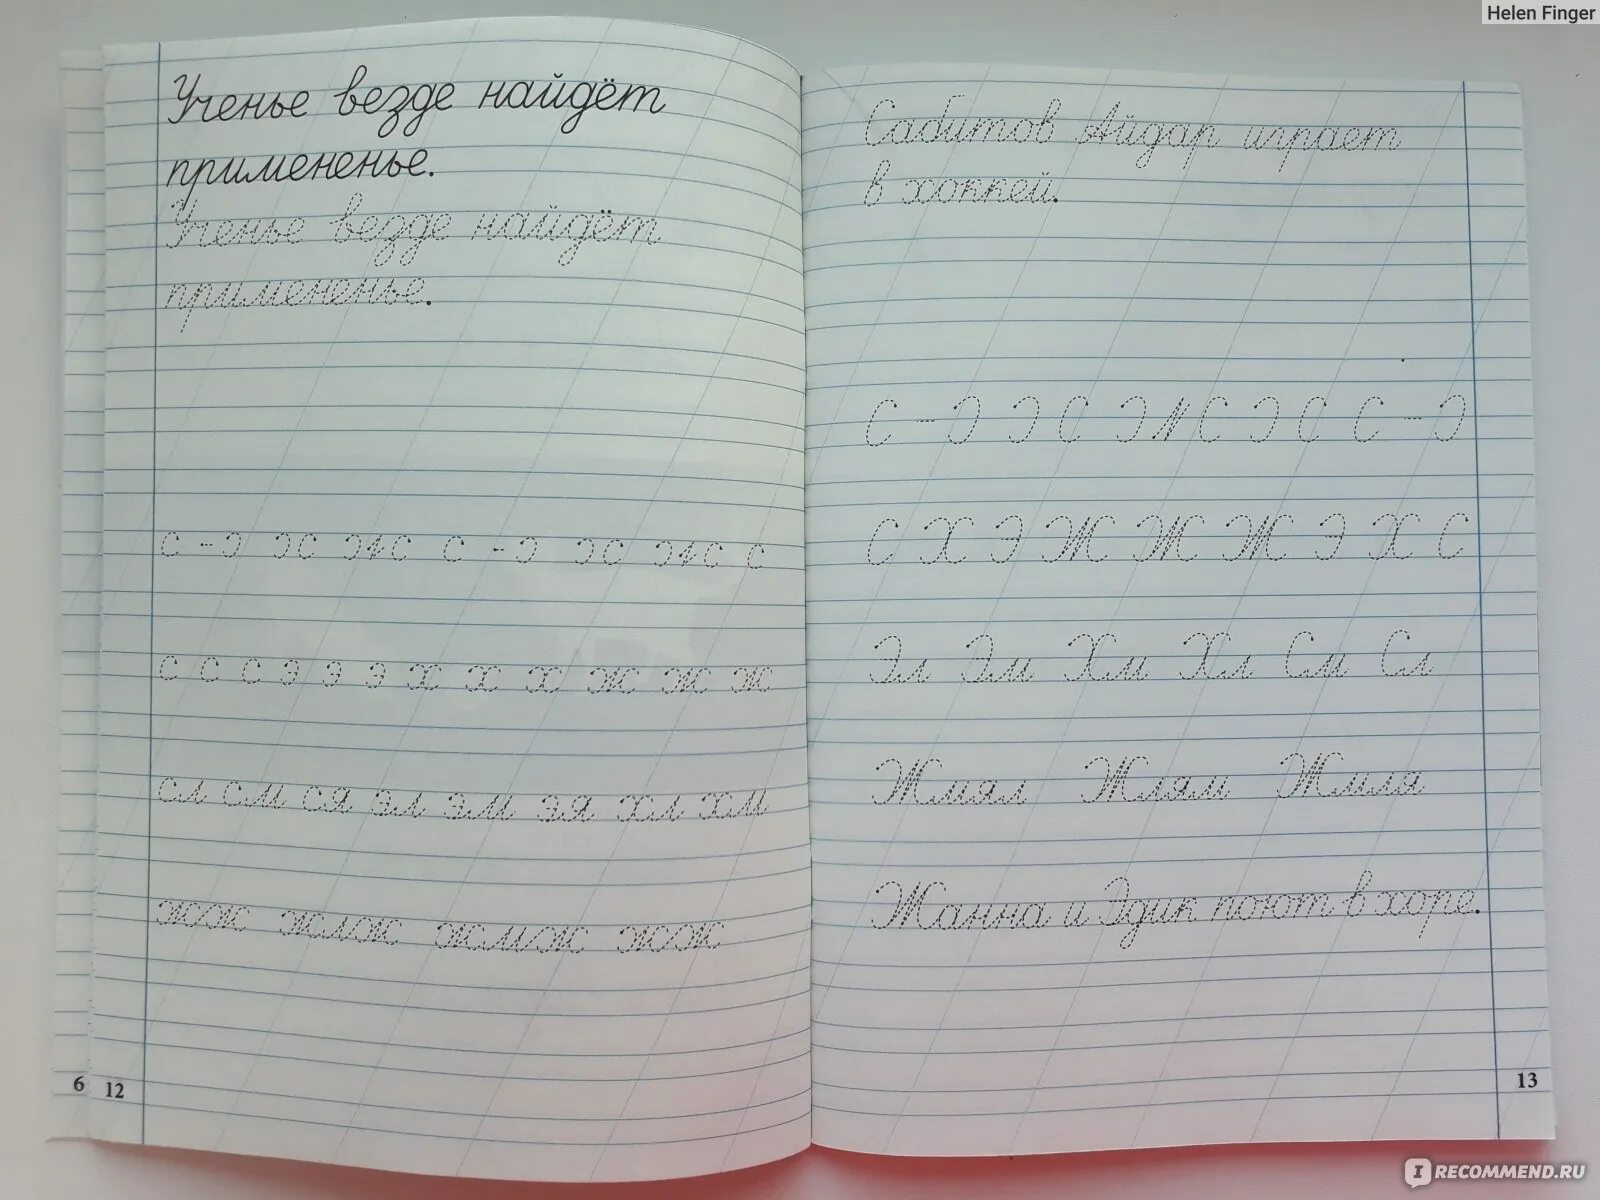 Helen Finger
Ученье везде найдёт
примененье.
Ученье везде найдёт
примененье.
с - ɔ ɔс ɔис с - ɔ ɔс ɔис с
с с с э э э х х х ж ж ж
сл см ся эл эм эя хл хм
жж жлж жмж жж
6 12
Сабитов Айдар играет
в хоккей.
С - Ɔ Ɔ С ƆИС Ɔ С С - Ɔ
С Х Э Ж Ж Ж Э Х С
Эл Эм Хм Хл См Сл
Жмял Жлям Жмля
Жанна и Эдик поют в хоре.
13
IRECOMMEND.RU